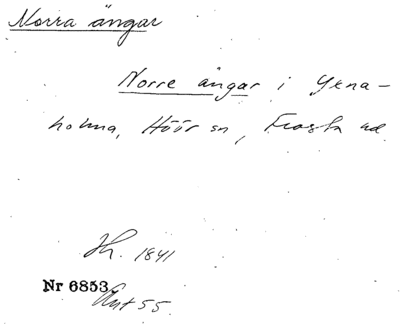 Norra ängar
Norre ängar i Yxna-
holma, Höör sn, Frosta hd
Jh. 1841
Nr 6853
Ant 55.